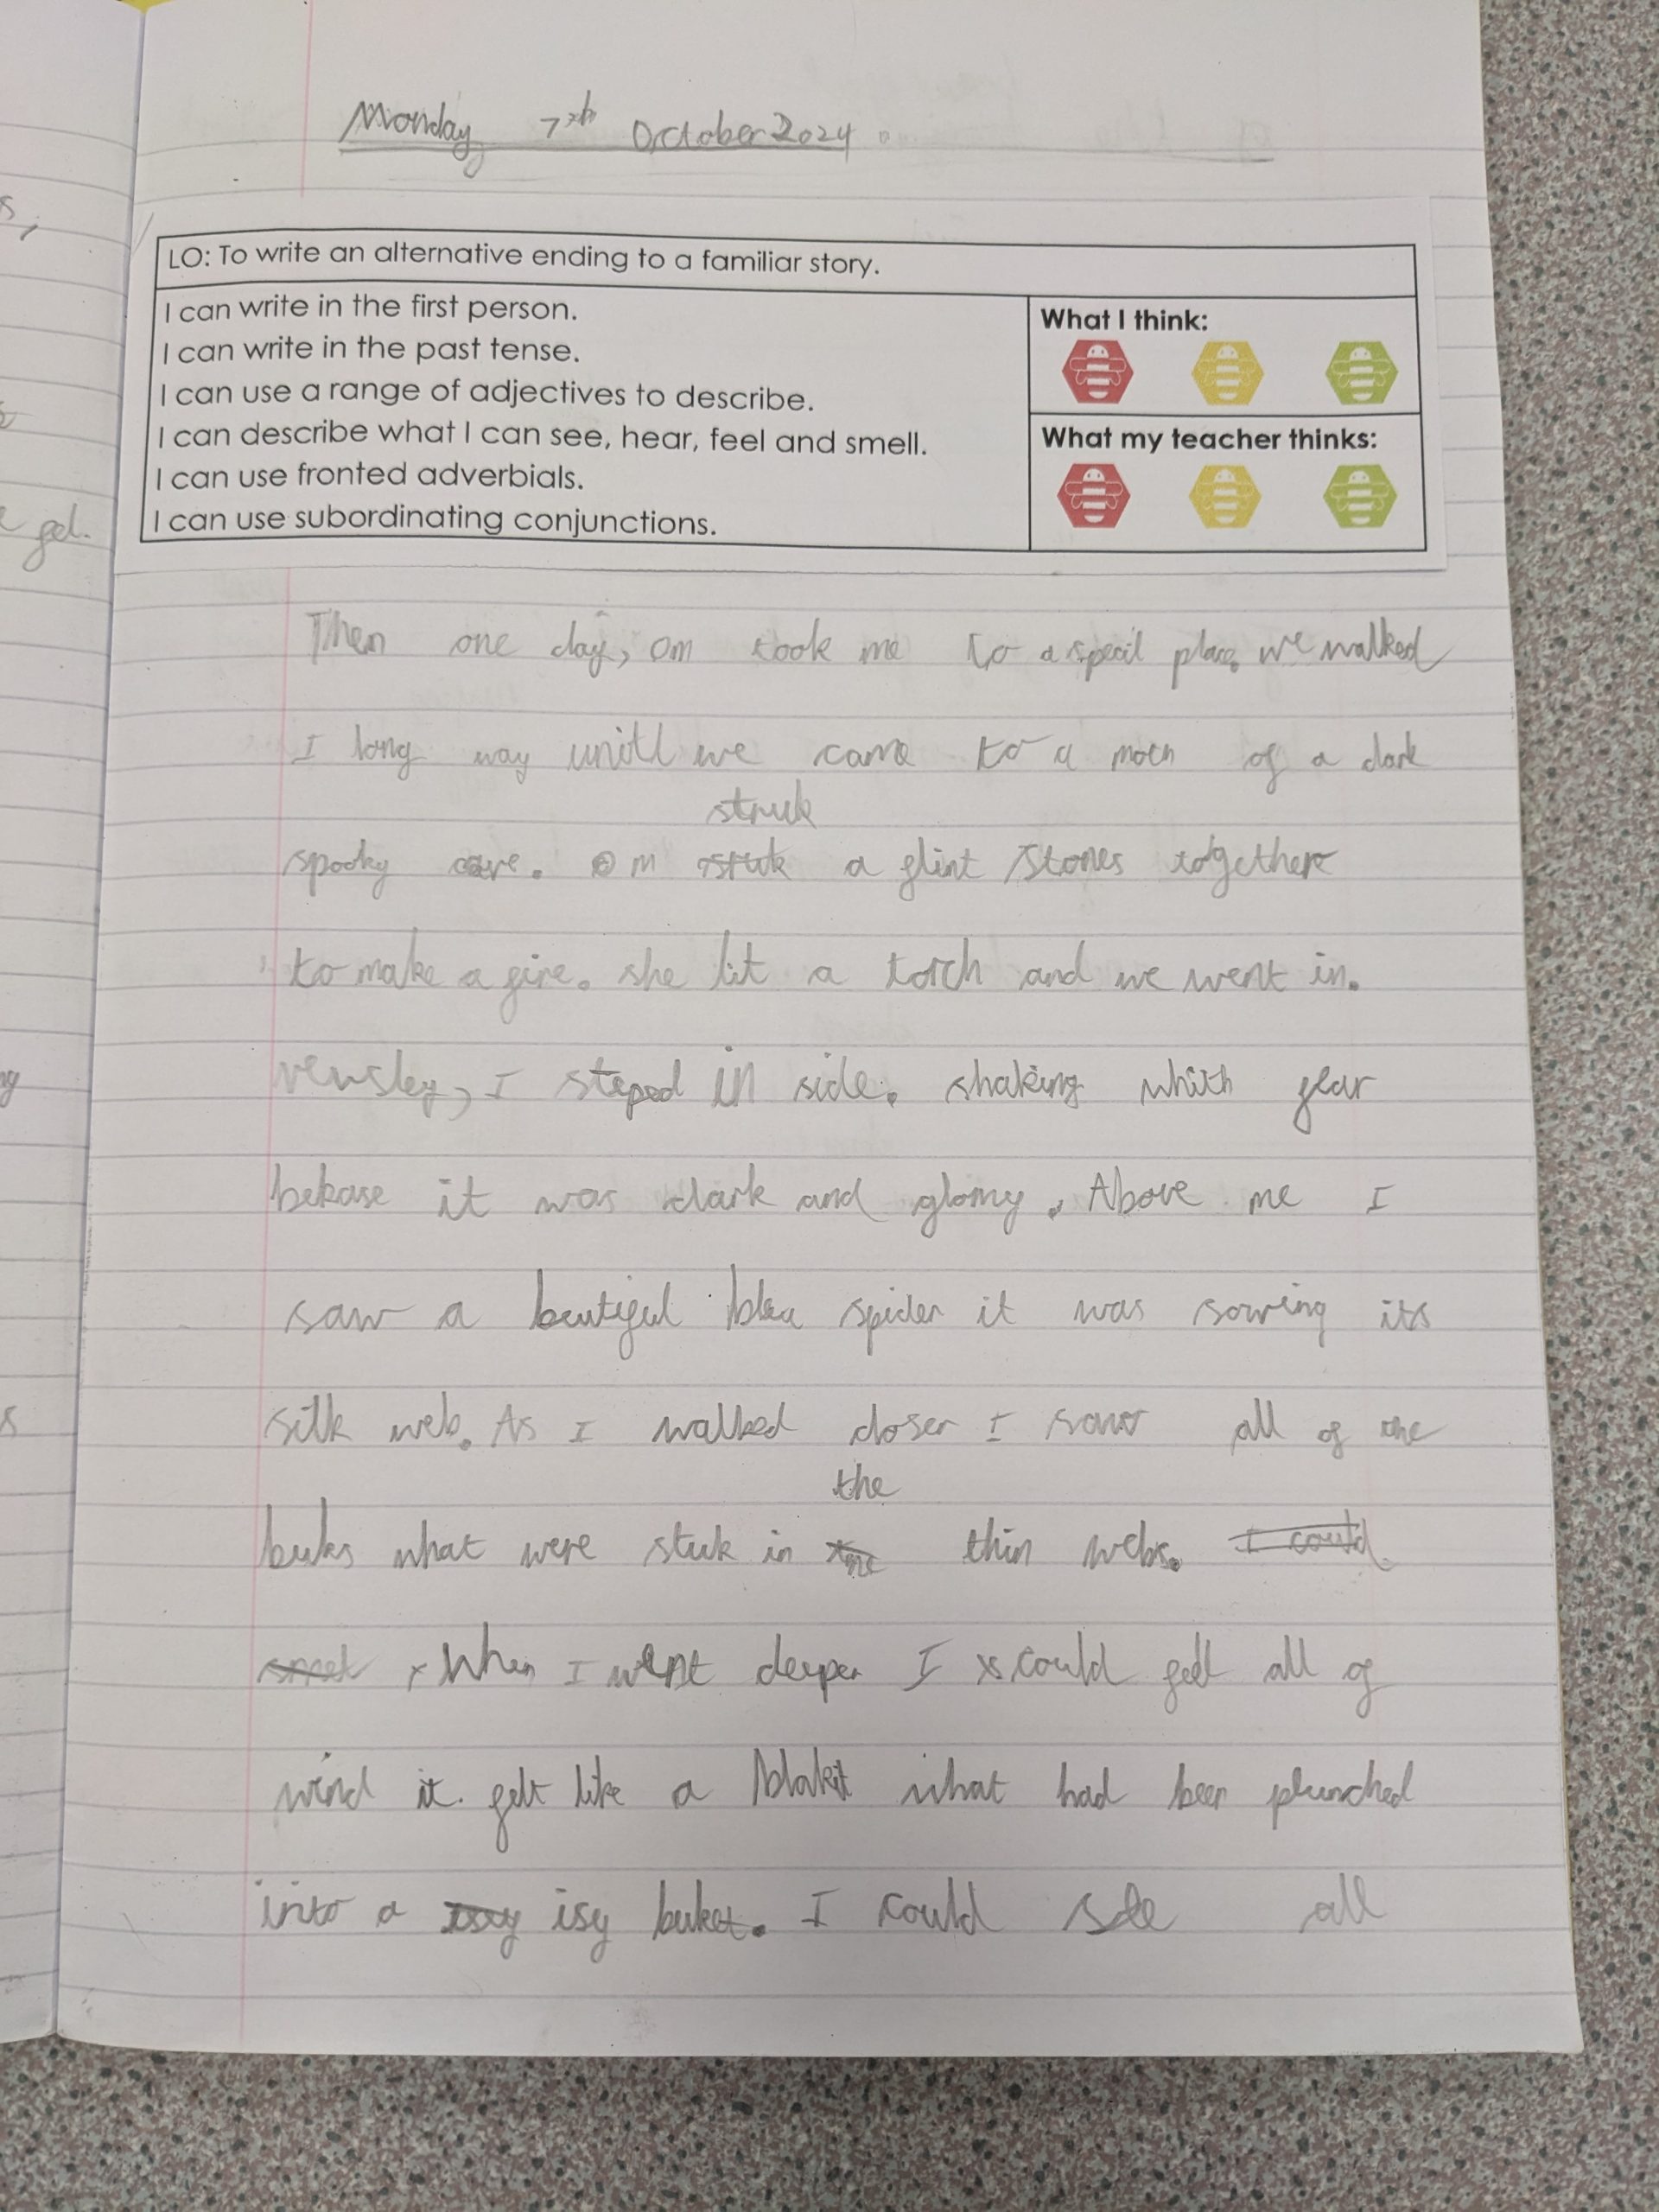 Monday 7th October 2024
LO: To write an alternative ending to a familiar story.
I can write in the first person.
I can write in the past tense.
I can use a range of adjectives to describe.
I can describe what I can see, hear, feel and smell.
I can use fronted adverbials.
I can use subordinating conjunctions.
What I think:
What my teacher thinks:
Then one day, om took me to a specil place. we walked
I long way unitl we came to a moth of a dark
struk
spooky cave. Om struk a flint stones together
to make a fire. she lit a torch and we went in.
I steped in side. shaking whith fear
bekase it was dark and glomy. Above me I
saw a beutiful blea spider it was sowing its
silk web. As I walked closer I saw all of the
the
buks what were stuk in thin webs. I could
smel When I went deeper I could feel all of
wind it felt like a blakit what had been plunched
into a isy buket. I could see all
gel.